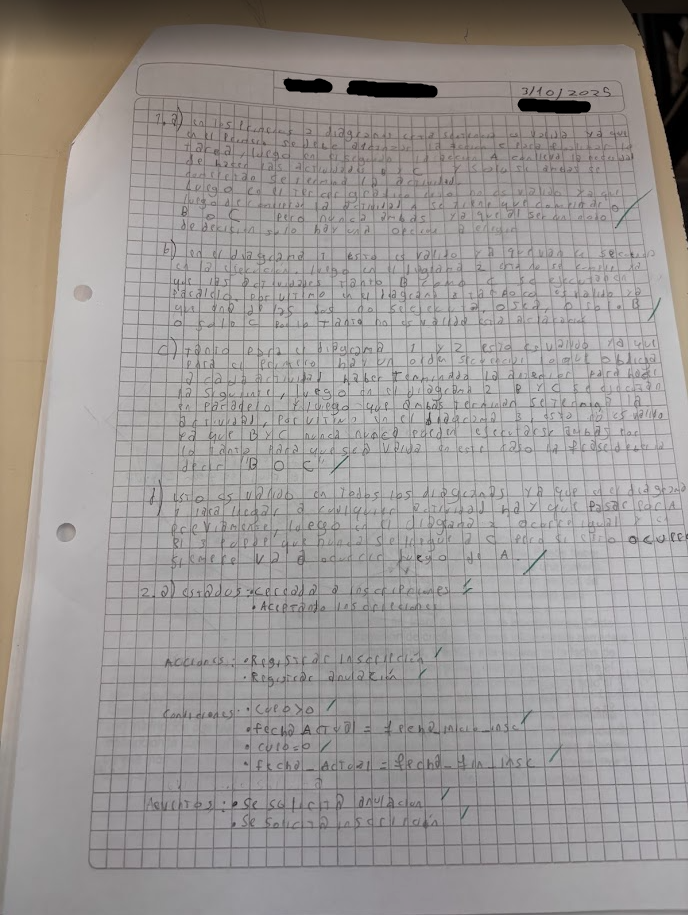 3/10/2025
1. a) en los primeros 2 diagramas esta sentencia es valida ya que
en el primero se debe
luego en el segundo la accion A conlleva la
de hacer las actividades B y C y solo si ambas se
se termina la actividad.
Luego en el tercer no es valido ya que
luego de la actividad A se tiene que completar o
B o C pero nunca ambas ya que al ser un nodo
de decisión solo hay una opcion a elegir
b) en el diagrama 1 esto es valido ya que
en la Luego en el diagrama 2
que las actividades tanto B como C se ejecutan en
paralelo. Por ultimo en el diagrama 3 tampoco es valido ya
que una de las dos no se ejecuta, o sea, o solo B
o solo C por lo tanto no es valida esta
c) Tanto para el diagrama 1 y 2 esto es valido ya que
para el primero hay un orden secuencial lo que obliga
a cada actividad haber terminado la anterior para hacer
la siguiente, luego en el diagrama 2 B y C se ejecutan
en paralelo y luego que ambas terminan se termina la
actividad, Por ultimo en el diagrama 3 esto no es valido
ya que B y C nunca nunca pueden ejecutarse ambas por
lo tanto para que sea valida en este caso la frase deberia
decir "B O C"
d) Esto es valido en todos los diagramas ya que en el diagrama
1 para llegar a cualquier actividad hay que pasar por A
previamente, luego en el diagrama 2 ocurre igual y
el 3 puede que nunca se llegue a C pero si esto ocurre
siempre va a ocurrir luego de A.
2. a) estados: • cerrada a inscripciones
• Aceptando inscripciones
Acciones: • Registrar inscripción
• Registrar anulación
Condiciones: • cupo>0
• fecha Actual = fecha_inicio_insc
• cupo=0
• fecha_Actual = fecha_fin_insc
• Se solicita anulacion
• Se solicita inscripción